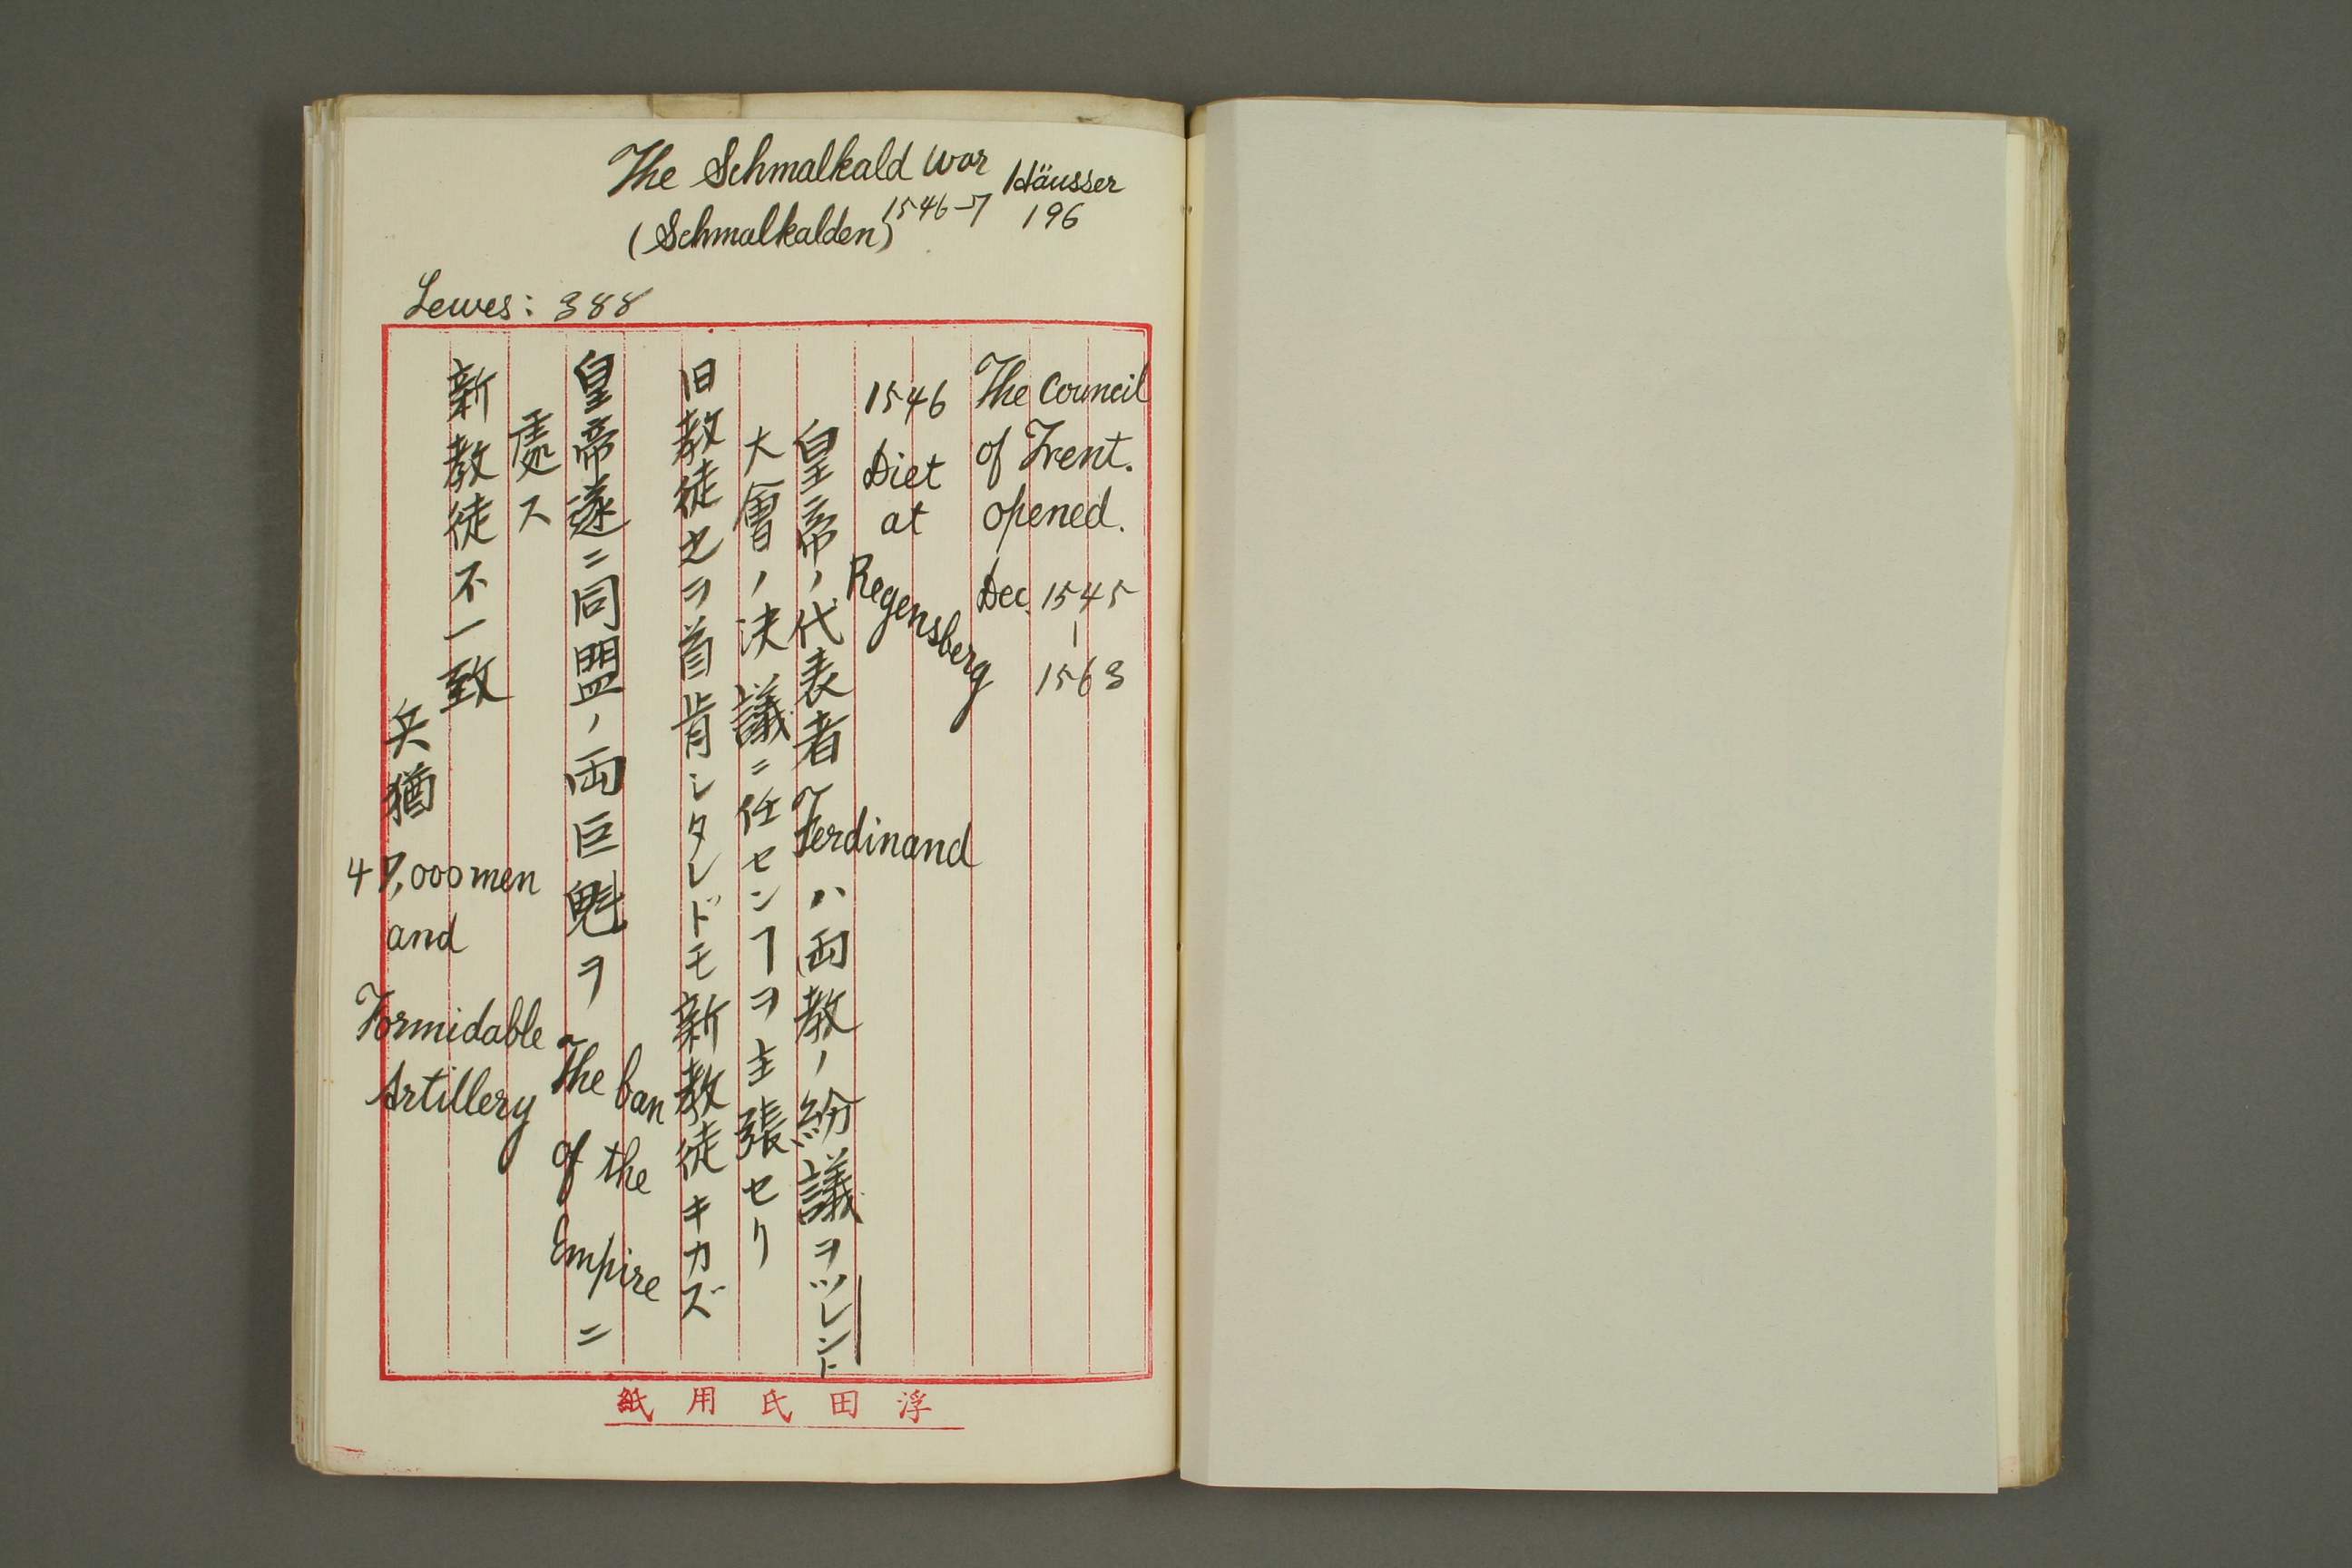 The Schmalkald war
(Schmalkalden) 1546-7
Häusser
196
Lewes: 388
The Council
of Trent.
opened.
Dec. 1545
|
1563
1546
Diet
at
Regensberg
皇帝ノ代表者Ferdinandハ両教ノ紛議ヲツレント
大會ノ決議ニ任センヿヲ主張セリ
旧教徒之ヲ首肯シタレドモ新教徒キカズ
皇帝遂ニ同盟ノ両巨魁ヲThe ban of the Empireニ
處ス
新教徒不一致
兵猶
47,000 men
and
Formidable
Artillery
浮田氏用紙